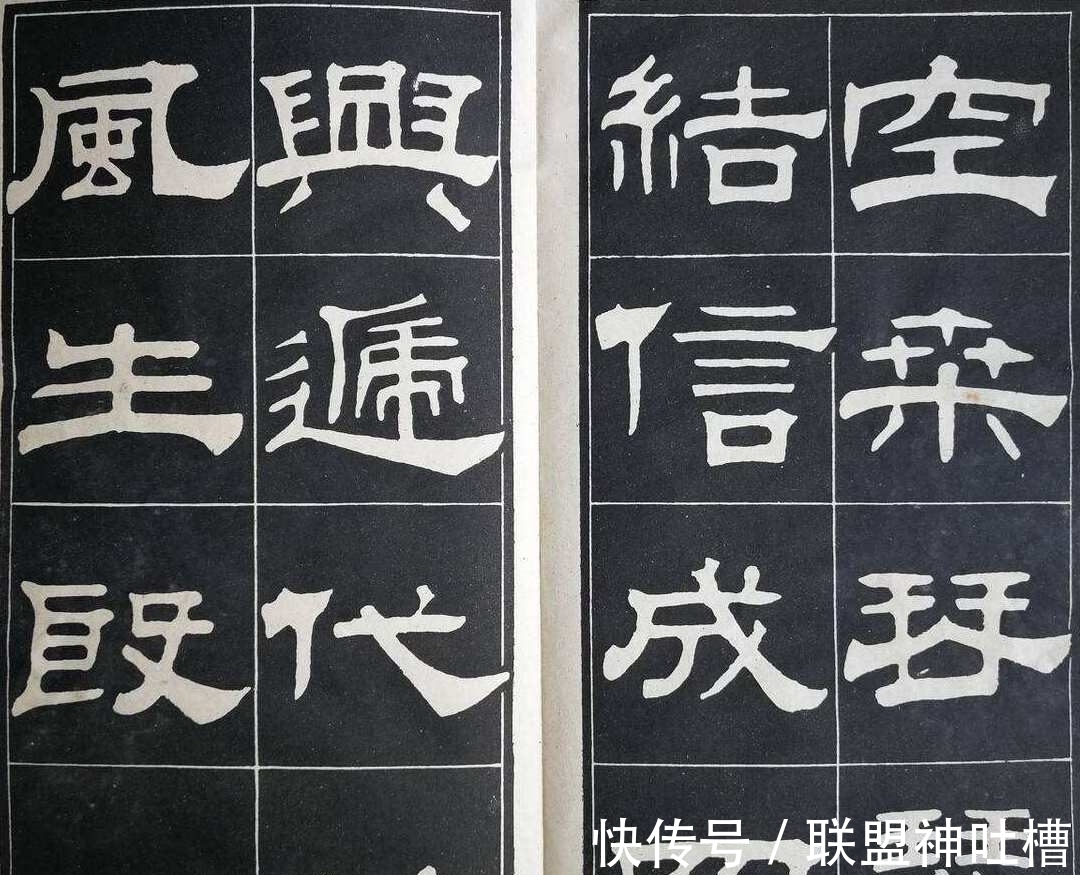 空桑琴
結信成
興遞代
風生殷
快传号 / 联盟神吐槽